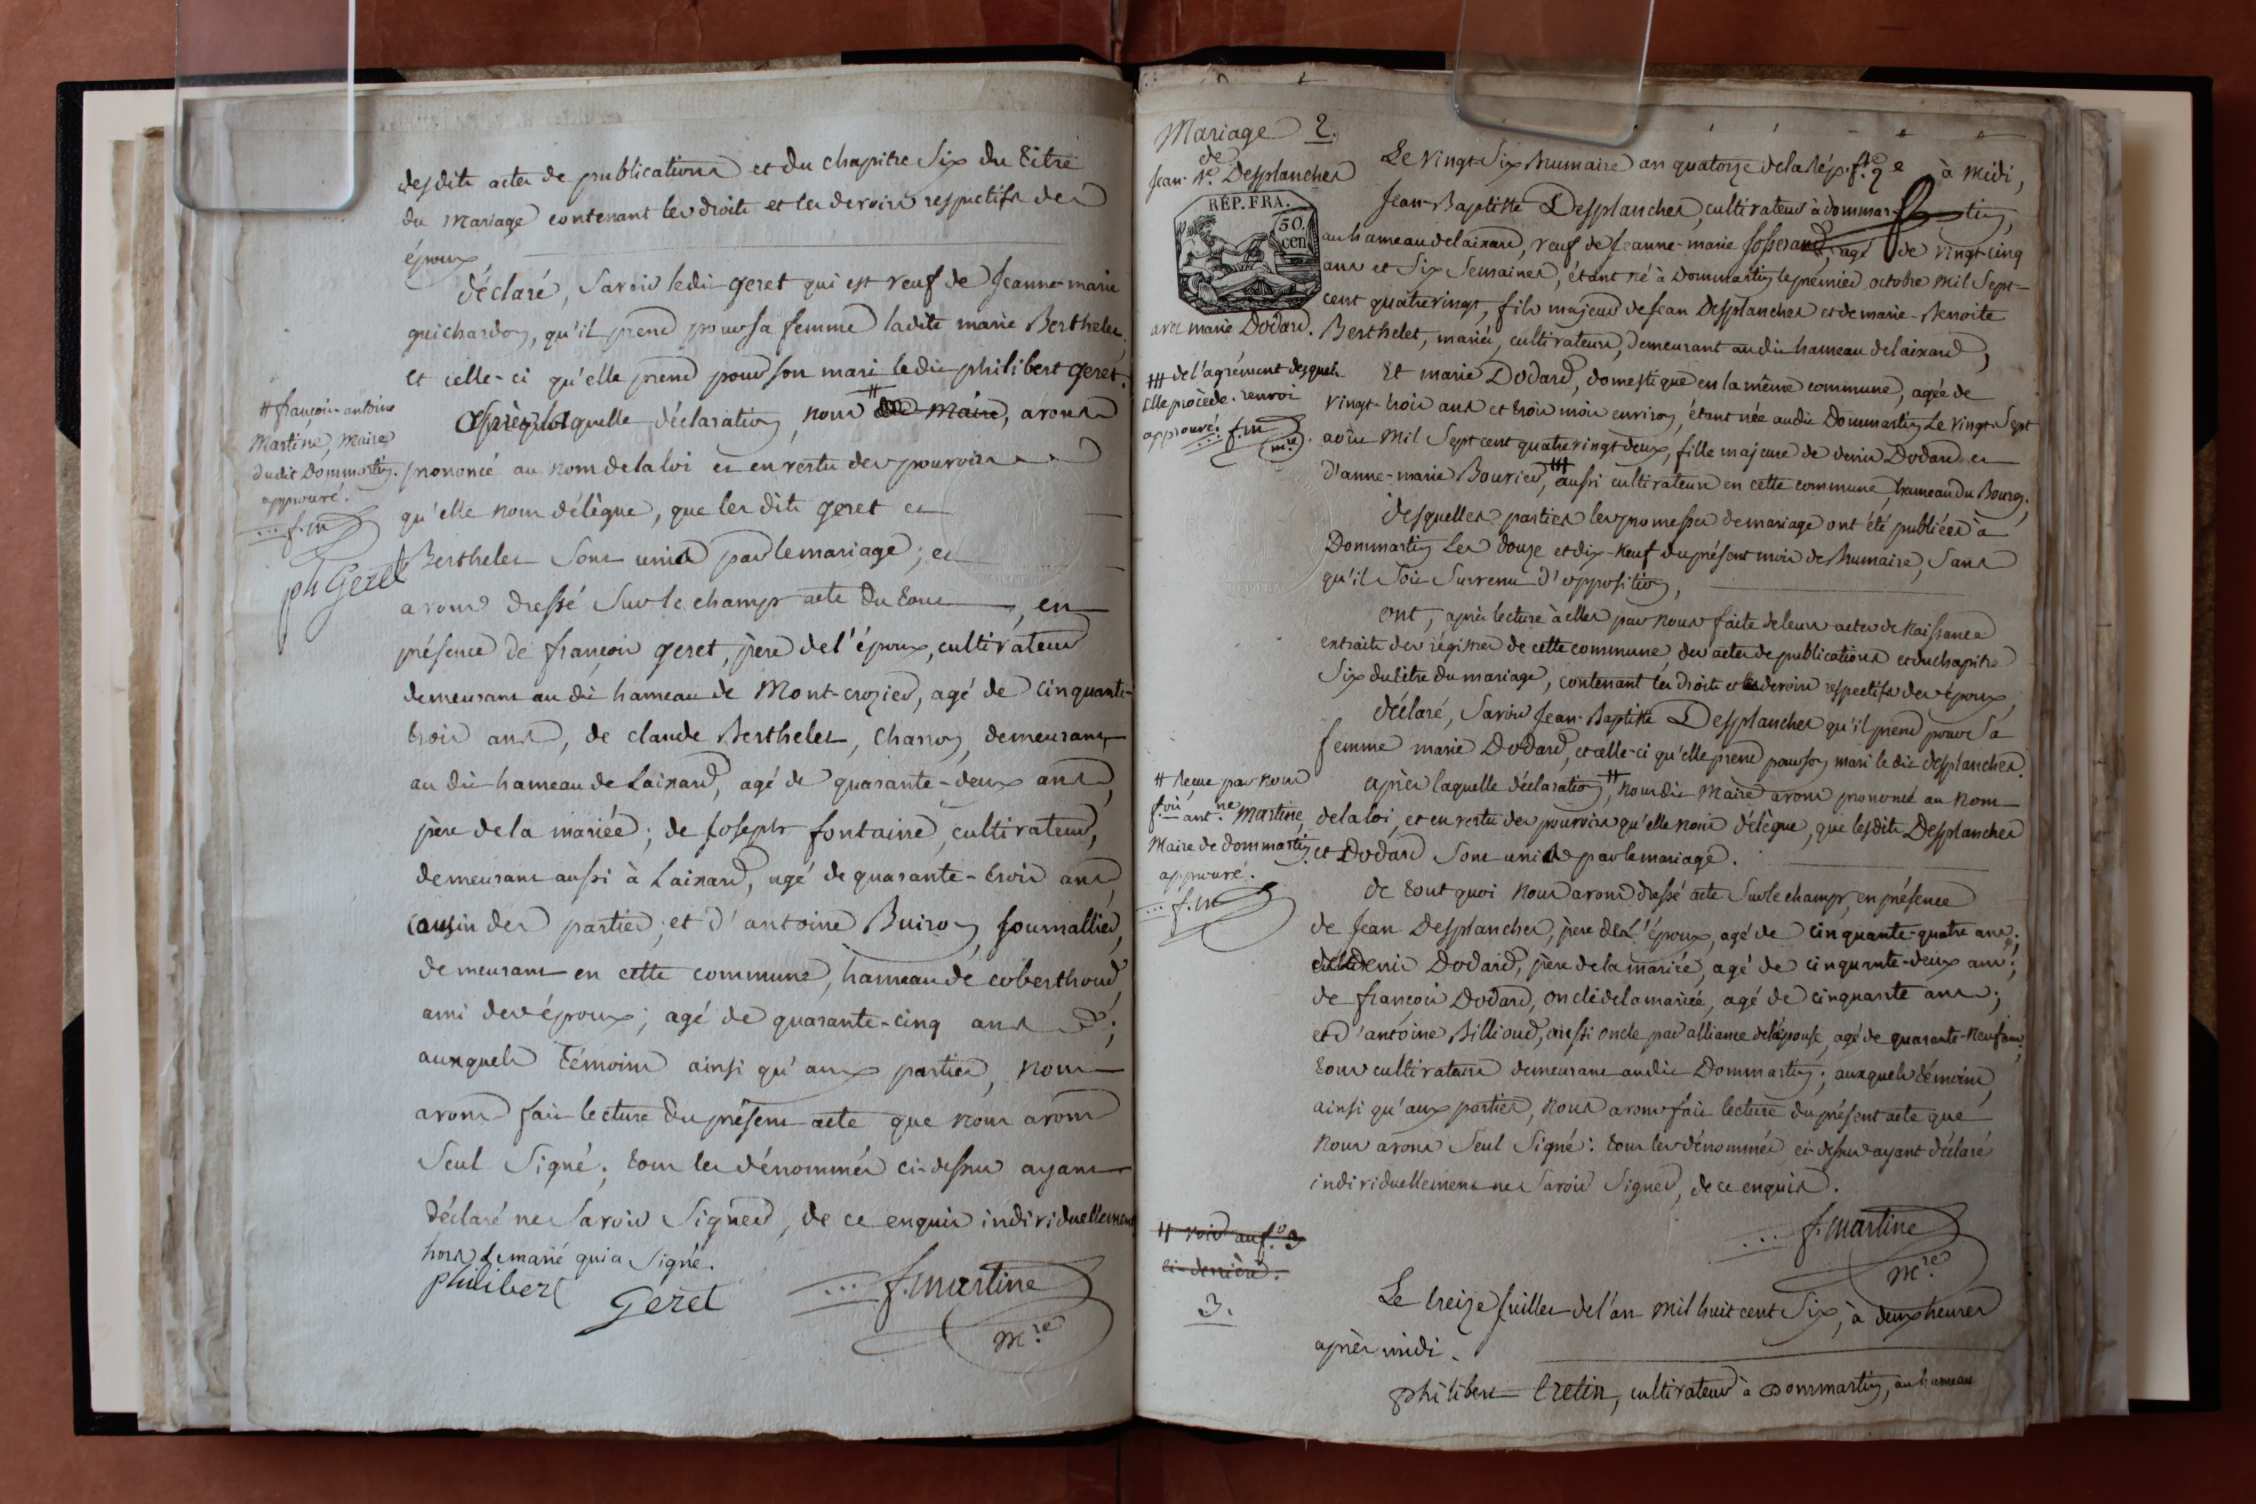 desdits actes de publications et du chapitre Six du titre
du Mariage contenant les droits et les devoirs respectifs des
époux,
déclaré, Savoir ledit geret qui est veuf de Jeanne-marie
guichardon, qu'il prend pour sa femme ladite marie Berthelet,
et celle-ci qu'elle prend pour son mari ledit philibert geret.
Après laquelle déclaration, nous # dit Maire, avons
# françois-antoine
Martine, Maire
dudit Dommartin.
approuvé.
... f.m
ph Geret
prononcé au nom de la loi et en vertu des pouvoirs
qu'elle nous délègue, que les dits geret et
Berthelet Sont unis par le mariage ; et
avons dressé Sur le champ acte du tout, en
présence de françois geret, père de l'époux, cultivateur
demeurant au dit hameau de Mont-crozier, agé de cinquante-
trois ans, de claude Berthelet, charron, demeurant
au dit hameau de Laixard, agé de quarante-deux ans,
père de la mariée ; de Joseph fontaine, cultivateur,
demeurant aussi à Laixard, agé de quarante-trois ans
cousin des parties ; et d'antoine Buiron, Journallier,
demeurant en cette commune, hameau de coberthoud,
ami des époux ; agé de quarante-cinq ans ;
auxquels témoins ainsi qu'aux parties, nous
avons fait lecture du présent acte que nous avons
Seul Signé ; tous les dénommés ci-dessus ayant
déclaré ne Savoir Signer, de ce enquis individuellement
hors le marié qui a Signé.
philibert Geret
... f. martine
m.re
Mariage 2.
de
Jean-B.te Desplanches
RÉP. FRA.
50.
cen
avec marie Dodard.
### de l'agrément desquels
Elle procède. renvoi
approuvé. f.m
m.re
Le vingt-Six Brumaire an quatorze de la Rép. f.se à Midi,
Jean-Baptiste Desplanches, cultivateur à dommartin,
au hameau de laixard, veuf de Jeanne-marie Josserand, agé de vingt-cinq
ans et Six Semaines, étant né à Dommartin le premier octobre mil Sept-
cent quatrevingt, fils majeur de Jean Desplanches et de marie-Benoite
Berthelet, mariés, cultivateurs, demeurant au dit hameau de laixard,
Et marie Dodard, domestique en la même commune, agée de
vingt-trois ans et trois mois environ, étant née audit Dommartin Le vingt-Sept
août Mil Sept cent quatrevingt deux, fille majeure de denis Dodard et
d'anne-marie Bourier, ### aussi cultivateurs en cette commune, hameau du Bourg.
desquelles parties les promesses de mariage ont été publiées à
Dommartin Les douze et dix-neuf du présent mois de Brumaire, Sans
qu'il Soit Survenu d'opposition,
ont, après lecture à elles par nous faite de leurs actes de naissance
extraits des régistres de cette commune, des actes de publications et du chapitre
Six du titre du mariage, contenant les droits et les devoirs respectifs des époux,
déclaré, Savoir Jean-Baptiste Desplanches qu'il prend pour Sa
femme marie Dodard, et celle-ci qu'elle prend pour son mari le dit desplanches.
# reçue par nous
f.ois ant.ne Martine,
Maire de dommartin
approuvé.
... f.m
après laquelle déclaration, # nous dit Maire avons prononcé au nom
de la loi, et en vertu des pouvoirs qu'elle nous délègue, que lesdits Desplanches
et Dodard Sont unis par le mariage.
de tout quoi nous avons dressé acte Sur le champ, en présence
de Jean Desplanches, père de l'époux, agé de cinquante-quatre ans ;
de Denis Dodard, père de la mariée, agé de cinquante-deux ans ;
de françois Dodard, oncle de la mariée, agé de cinquante ans ;
et d'antoine Billioud, aussi oncle par alliance de l'épouse, agé de quarante-neuf ans,
tous cultivateurs demeurant audit Dommartin ; auxquels témoins,
ainsi qu'aux parties, nous avons fait lecture du présent acte que
nous avons Seul Signé : tous les dénommés ci-dessus ayant déclaré
individuellement ne Savoir Signer, de ce enquis.
... f. martine
m.re
# voir au f.o 3
ci-derrière.
3.
Le treize Juillet de l'an mil huit cent Six, à deux heures
après midi.
philibert tretin, cultivateur à Dommartin, au hameau